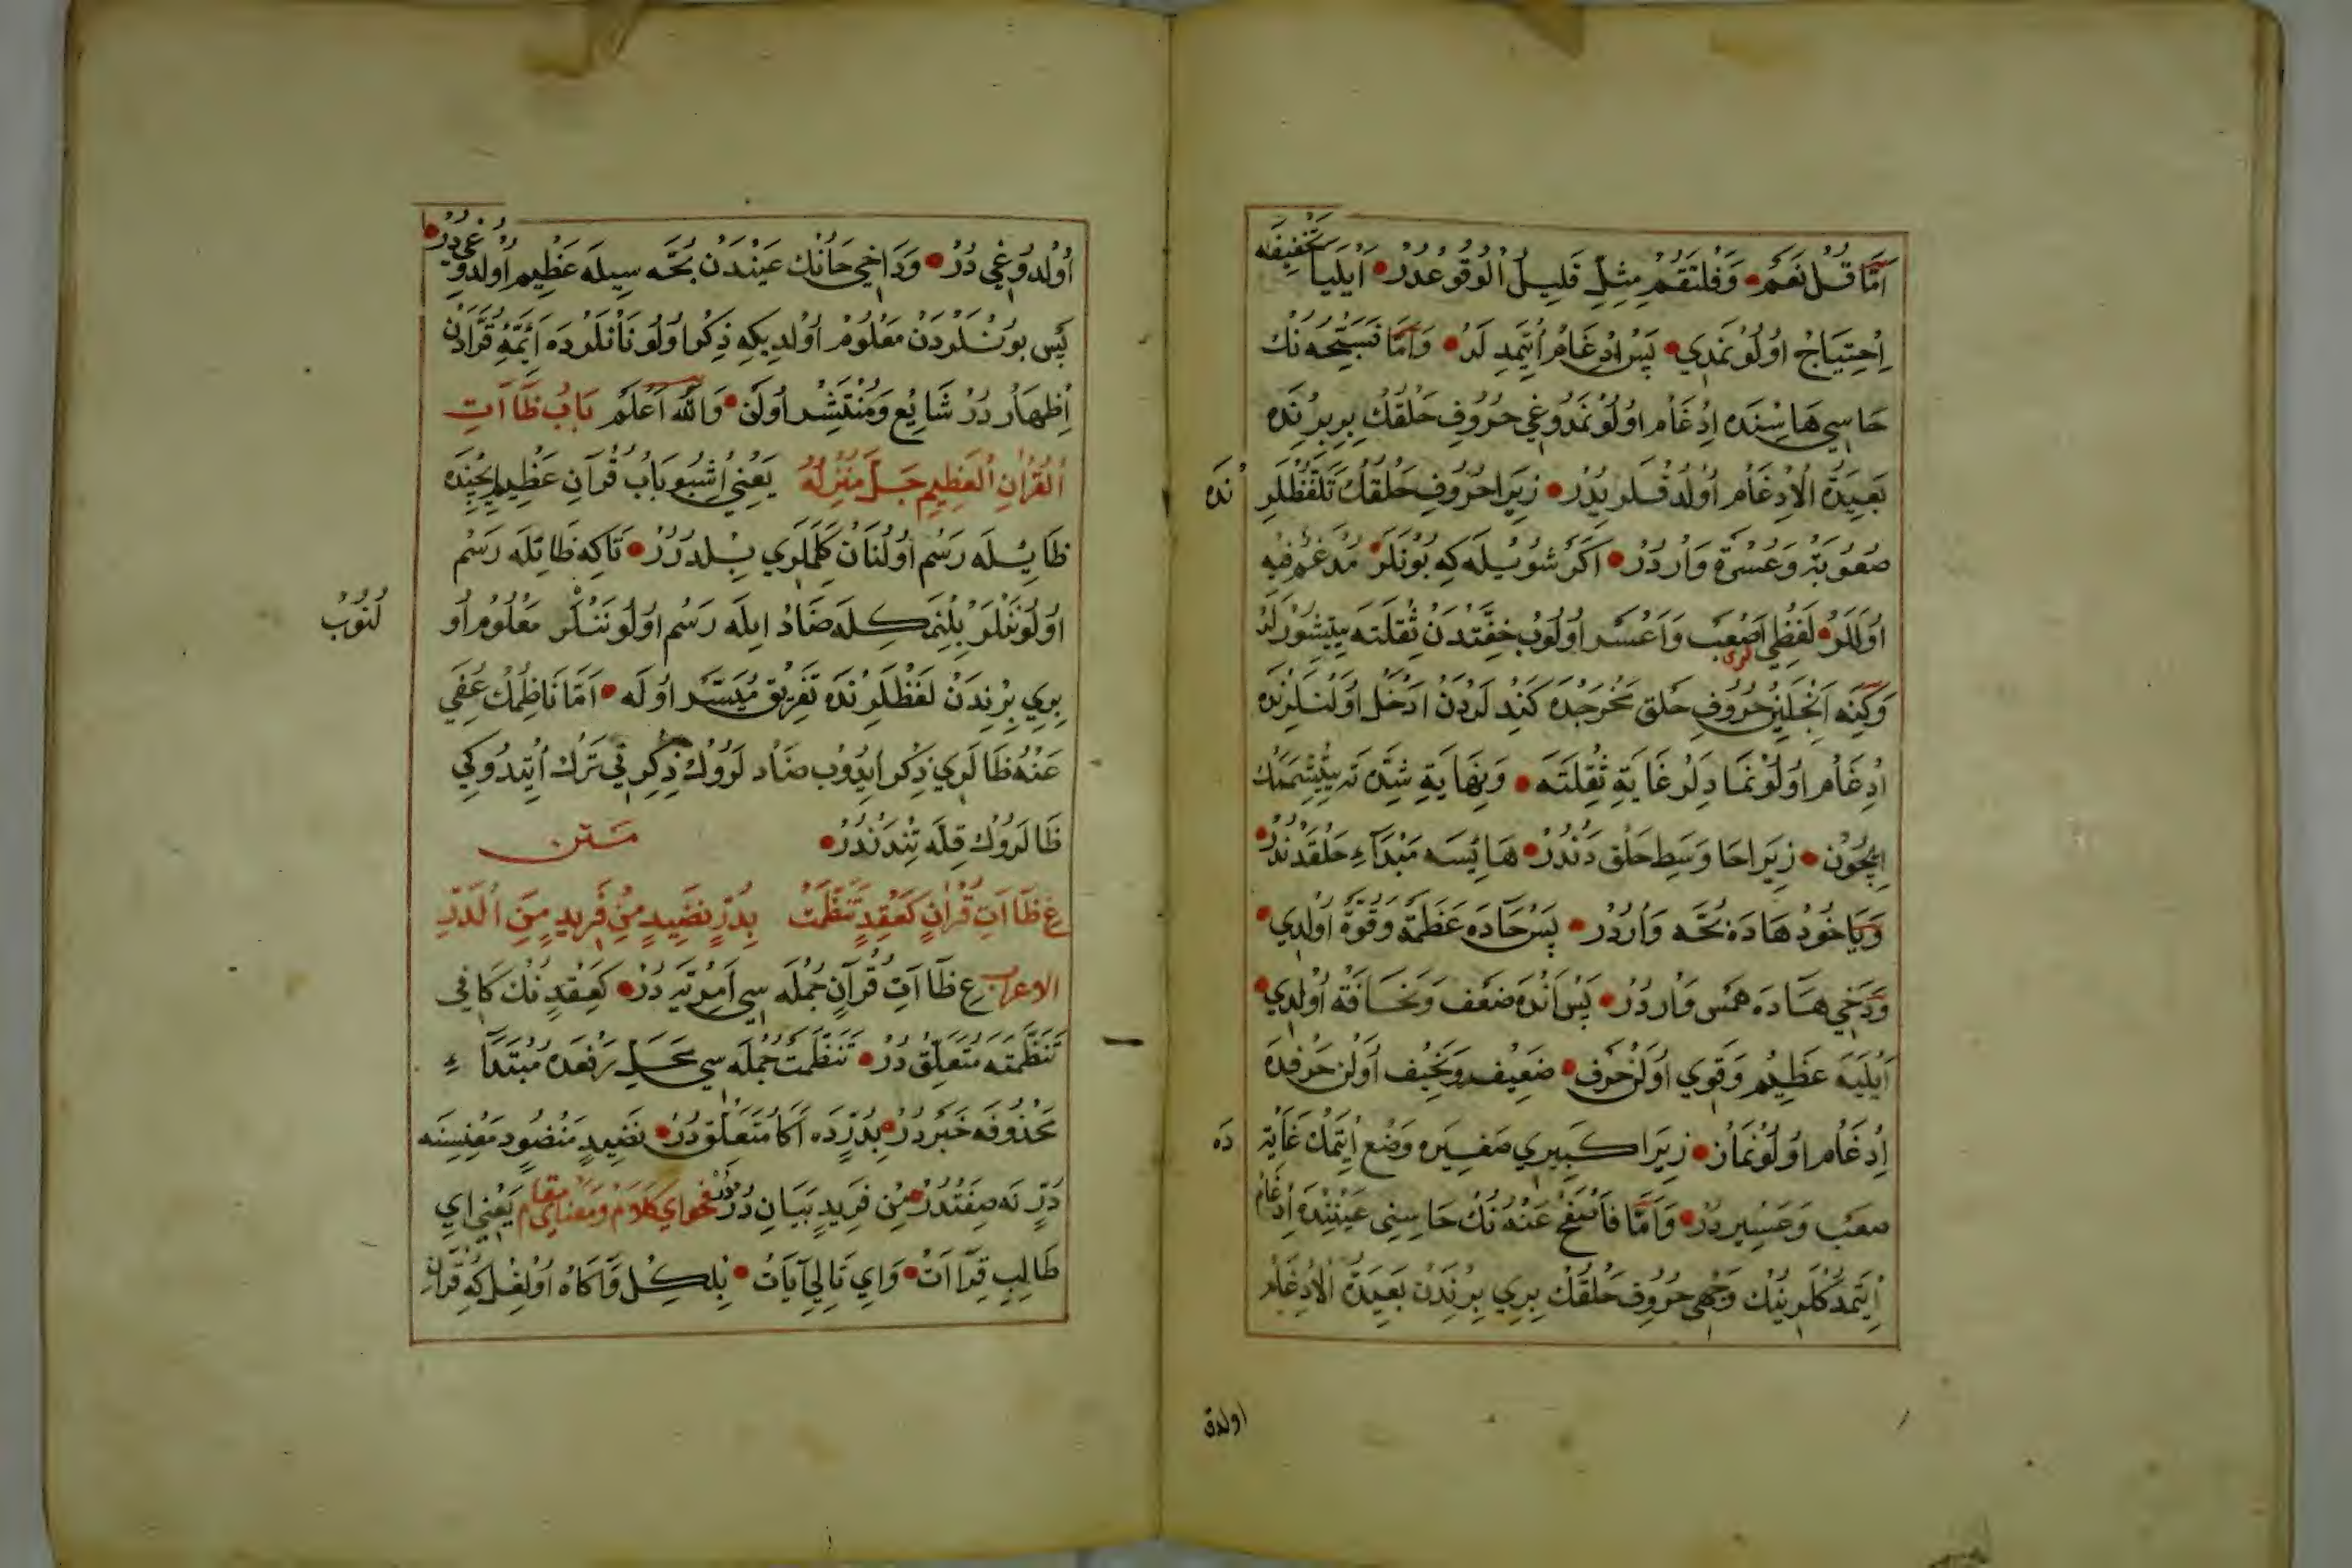 اَمَّا قُلْ نَعَمْ وَفَلْتَقُمْ مِثْلِ قَلِيلُ الْوُقُوعْدُرْ اَيْلَيَا تَخْفِيفَه
اِحْتِيَاجْ اوُلُونْمَدِي پَسْ اِدْغَامْ اُيتِمَدِلَرْ وَاَمَّا فَسَبِّحْهُ نُكْ
حَاسِي هَاسِنْدَه اِدْغَام اوُلُونْمَدُوغِي حُرُوفِ حَلْقُكْ بِرِبِرِنْدَه
بَعِيدَةُ الْاِدْغَام اُولْدُقْلَرِيدُرْ زِيَرا حُرُوفِ حَلْقُكْ تَلَفُّظْلَرِ نْدَه
صُعُوبَتْ وَعُسْرَة وَارْدُرْ اَكَرْ شُويْلَه كِه بُونْلَرْ مُدْغَمٌ فِيهِ
اوُلَلَرْ لَفْظِي اَصْعَبْ وَاَعْسَر اُولُوبْ خِفَّتْدَنْ ثِقْلَتَه يِتِيشُورْلَرْ
وَكِنَه اَنْجِلَيِنْ حُرُوفِ حَلْق مَخْرَجْدَه كَنْدُلَرْدَنْ اَدْخَلْ اوُلَنْلَرِنْدَه لرى
اِدْغَام اوُلُونْمَادِلَرْ غَايَةِ ثِقْلَتَه وَنِهَايَةِ شِدَّتَه يِتِيشْمَنُكْ
اِيچُونْ زِيَرا حَا وَسَطِ حَلْق دَنْدُرْ هَا يِسَه مَبْدَاءِ حَلْقَدَنْدُرْ
وَيَاخُودْ هَادَه بُحَّه وَارْدُرْ پَسْ حَادَه عَظَمَة وَقُوَّة اُولْدِي
وَدَخِي هَادَه هَمْس وَارْدُرْ پَسْ اَنْدَه ضَعْف وَنَحَافَة اُولْدِي
اَيْلَيَه عَظِيم وَقَوِي اُولَنْ حَرْف ضَعِيف وَنَحِيف اُولَنْ حَرْفَدَه
اِدْغَام اوُلُونْمَازْ زِيَرا كَبِيرِي صَغِيرَه وَضْع اِيتْمَكْ غَايَتْ دَه
صَعْب وَعَسِيردُرْ وَاَمَّا فَاصْفَحْ عَنْهُ نُكْ حَاسِنِي عَيْنِنْدَه اِدْغَام
اِيتِمَدُكْلَرِينُكْ وَجْهِي حُرُوفِ حَلْقُكْ بِرِي بِرِنْدَنْ بَعِيدَةُ الْاِدْغَام
اولدق
اُولْدُوغِي دُرْ وَدَاخِي حَانُكْ عَيْنْدَنْ بُحَّه سِيلَه عَظِيم اولْدُوغِيدُرْ
پَس بوُنْلَرْدَنْ مَعْلُومْ اُولْدِيكِه ذِكْر اوُلُونَانْلَرْدَه اَئِمَّهِ قُرَّادَنْ
اِظْهَاردُرْ شَايِع وَمُنْتَشِر اُولَنْ وَاللّٰه اَعْلَم بَابُ ظَاآتِ
الْقُرْاٰنِ الْعَظِيمِ جَلَّ مُنْزِلُهُ يَعْنِي اُشْبُو بَابْ قُرْآنِ عَظِيم اِيچِنْدَه
ظَايِيلَه رَسْم اوُلُنَانْ كَلِمَلَرِي بِيلْدُرُرْ تَاكِه ظَائِلَه رَسْم
اوُلُونَنْلَرْ بِلِنْمَكِلَه ضَادْ ايلَه رَسْم اوُلُونَنْلَر مَعْلُوم اُو لُنُوبْ
بِرِي بِرِنْدَنْ لَفْظْلَرِنْدَه تَفْرِيق مُيَسَّر اوُلَه اَمَّا نَاظِمْكْ عُفِيَ
عَنْهُ ظَالَرِي ذِكْر اِيدُوبْ ضَادلَرُوكْ ذِكْرِنِي تَرْكْ اِيتِدُوكِي
ظَالَرُوكْ قِلَّه تِنْدَنْدُرْ مَتن
ع ظَاآتِ قُرْاٰنٍ كَعِقْدٍ تَنَظَّمَتْ بِدُرٍّ نَضِيدٍ مِنْ فَرِيدٍ مِنَ الدُّرَرِ
الاعراب ع ظَآاتِ قُرْآنِ جُمْلَه سِي اَمْرِيَّه دُرْ كَعِقْدٍ نُكْ كَافِي
تَنَظَّمَتَه مُتَعَلِّق دُرْ تَنَظَّمَتْ جُمْلَه سِي مَحَلِّ رَفْعَدَه مُبْتَدَاءِ
مَحْذُوفَه خَبَردُرْ بِدُرٍّدَه اكَا مُتَعَلِّق دُرْ نَضِيدٍ مَنْضُود مَعْنِيسِنَه
دُرٍّ نَه صِفَتْدُرْ مِنْ فَرِيدٍ بَيَانِ دُرْدُرْ فحواي كَلَامْ وَمَعْنَاي مقام يَعْنِي اَي
طَالِبِ قِرَآاتْ وَاَي تَالِي آيَاتْ بِلْكِل وَآكَاه اوُلْغِل كِه قُرْآن